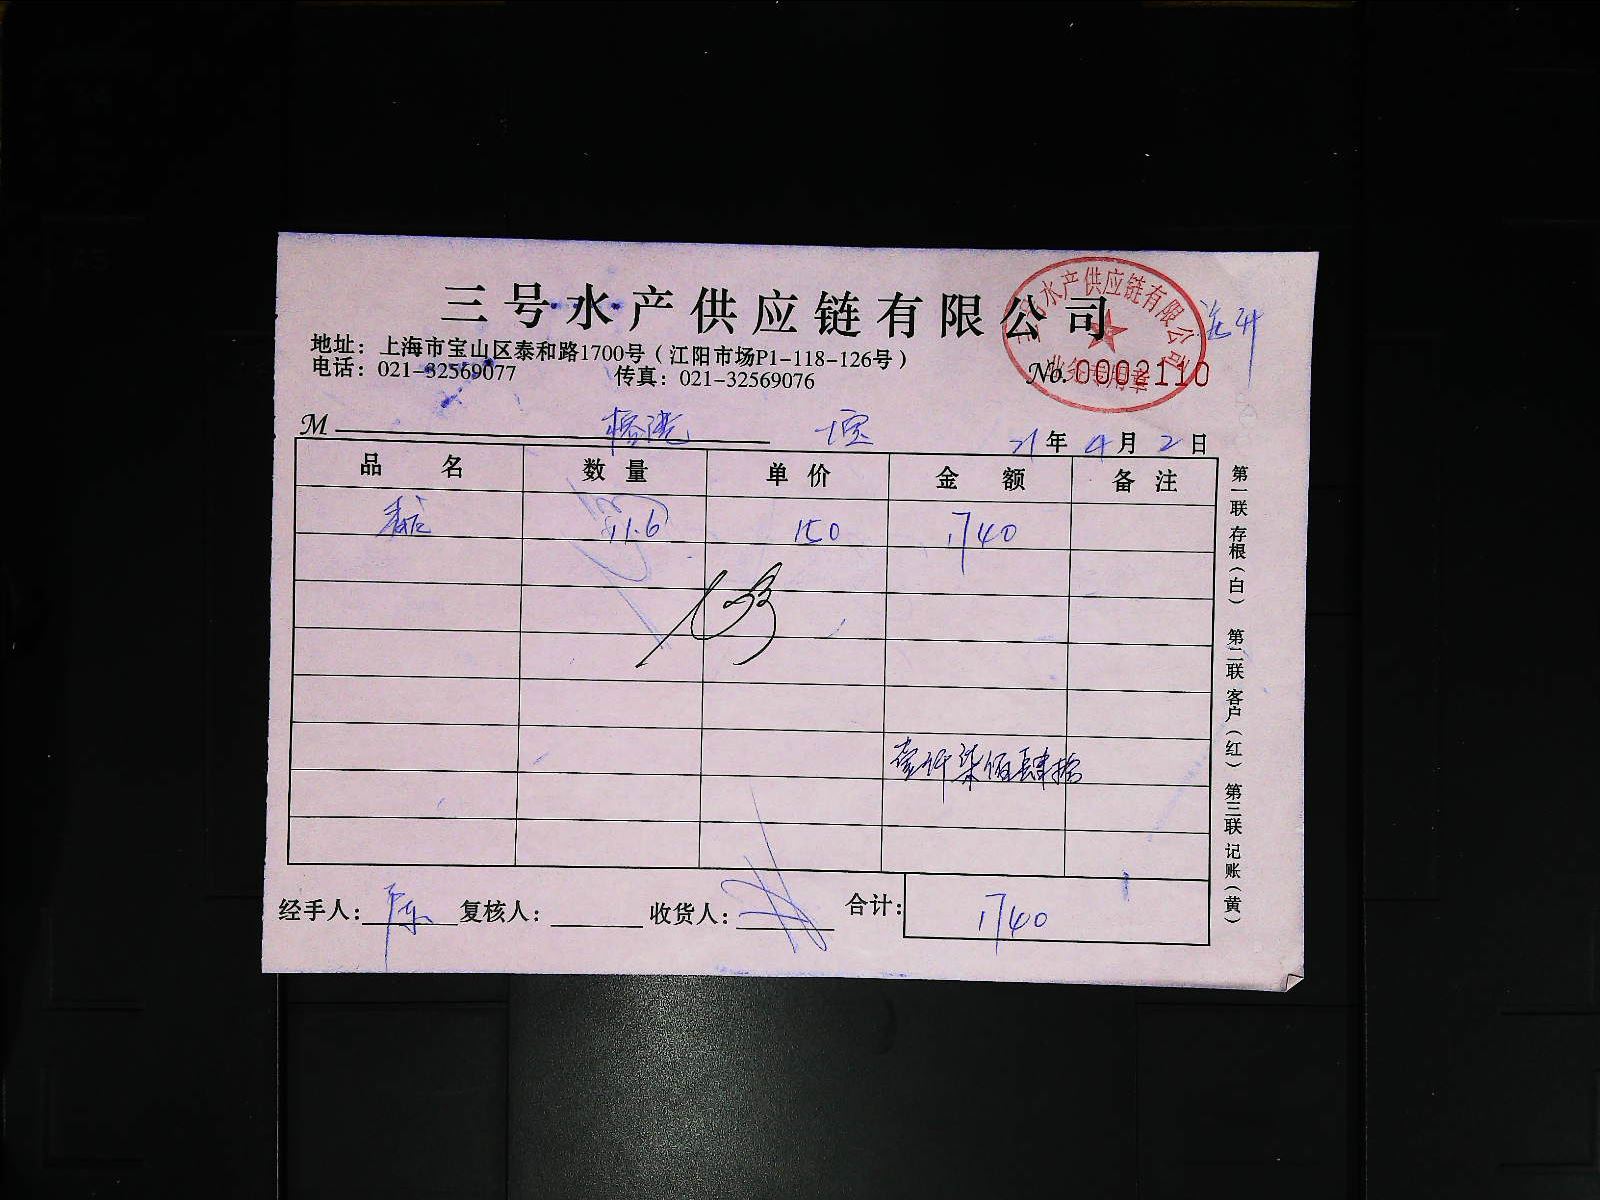 三号水产供应链有限公司
地址：上海市宝山区泰和路1700号（江阳市场P1-118-126号）
电话：021-32569077 传真：021-32569076
No. 0002110
水产供应链有限公司
业务专用章
M
21年4月2日
品名 数量 单价 金额 备注
11.6 150 1740
壹仟柒佰肆拾
经手人： 陈 复核人： 收货人： 合计： 1740
第一联 存根（白） 第二联 客户（红） 第三联 记账（黄）